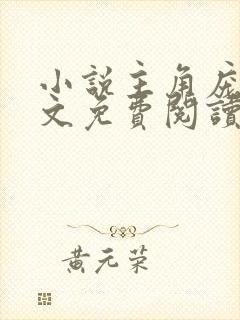 小說主角
文免費閱讀
黃元荣